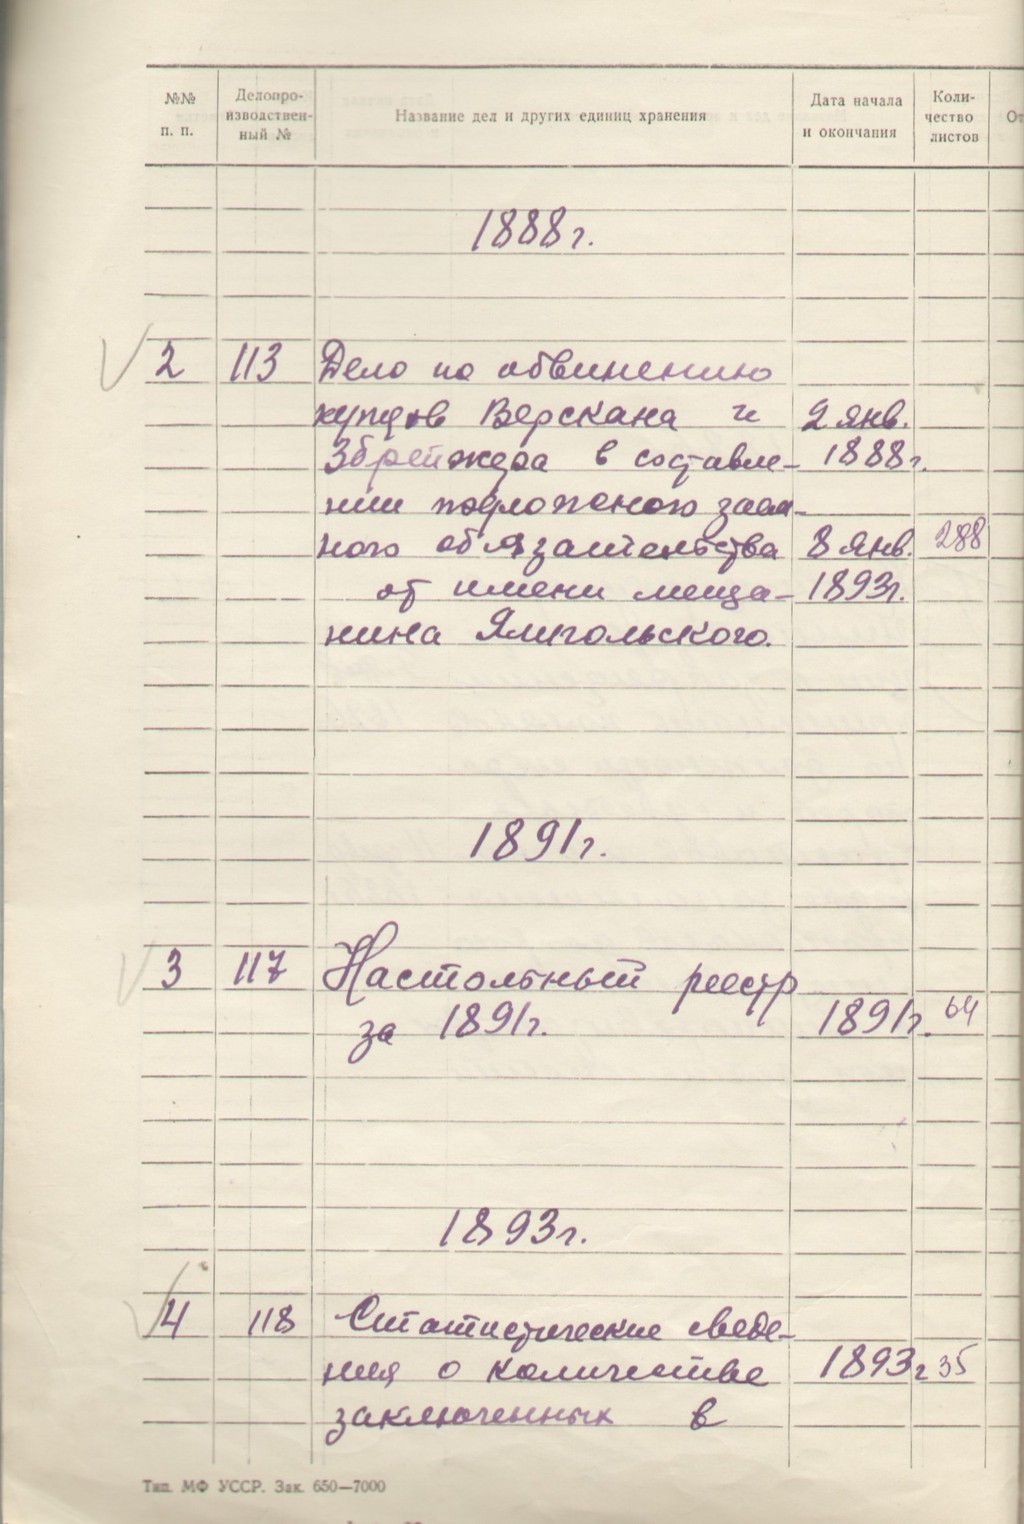 №№ п. п.
Делопро-
изводствен-
ный №
Название дел и других единиц хранения
Дата начала
и окончания
Коли-
чество
листов
От
1888 г.
2 113 Дело по обвинению
купцов Верскана и 2 янв.
Збрейжера в составле- 1888 г.
нии подложного заем-
ного обязательства 8 янв. 288
от имени меща- 1893 г.
нина Ямпольского.
1891 г.
3 117 Настольный реестр
за 1891 г. 1891 г. 64
1893 г.
4 118 Статистические сведе-
ния о количестве 1893 г 35
заключенных в
Тип. МФ УССР. Зак. 650—7000